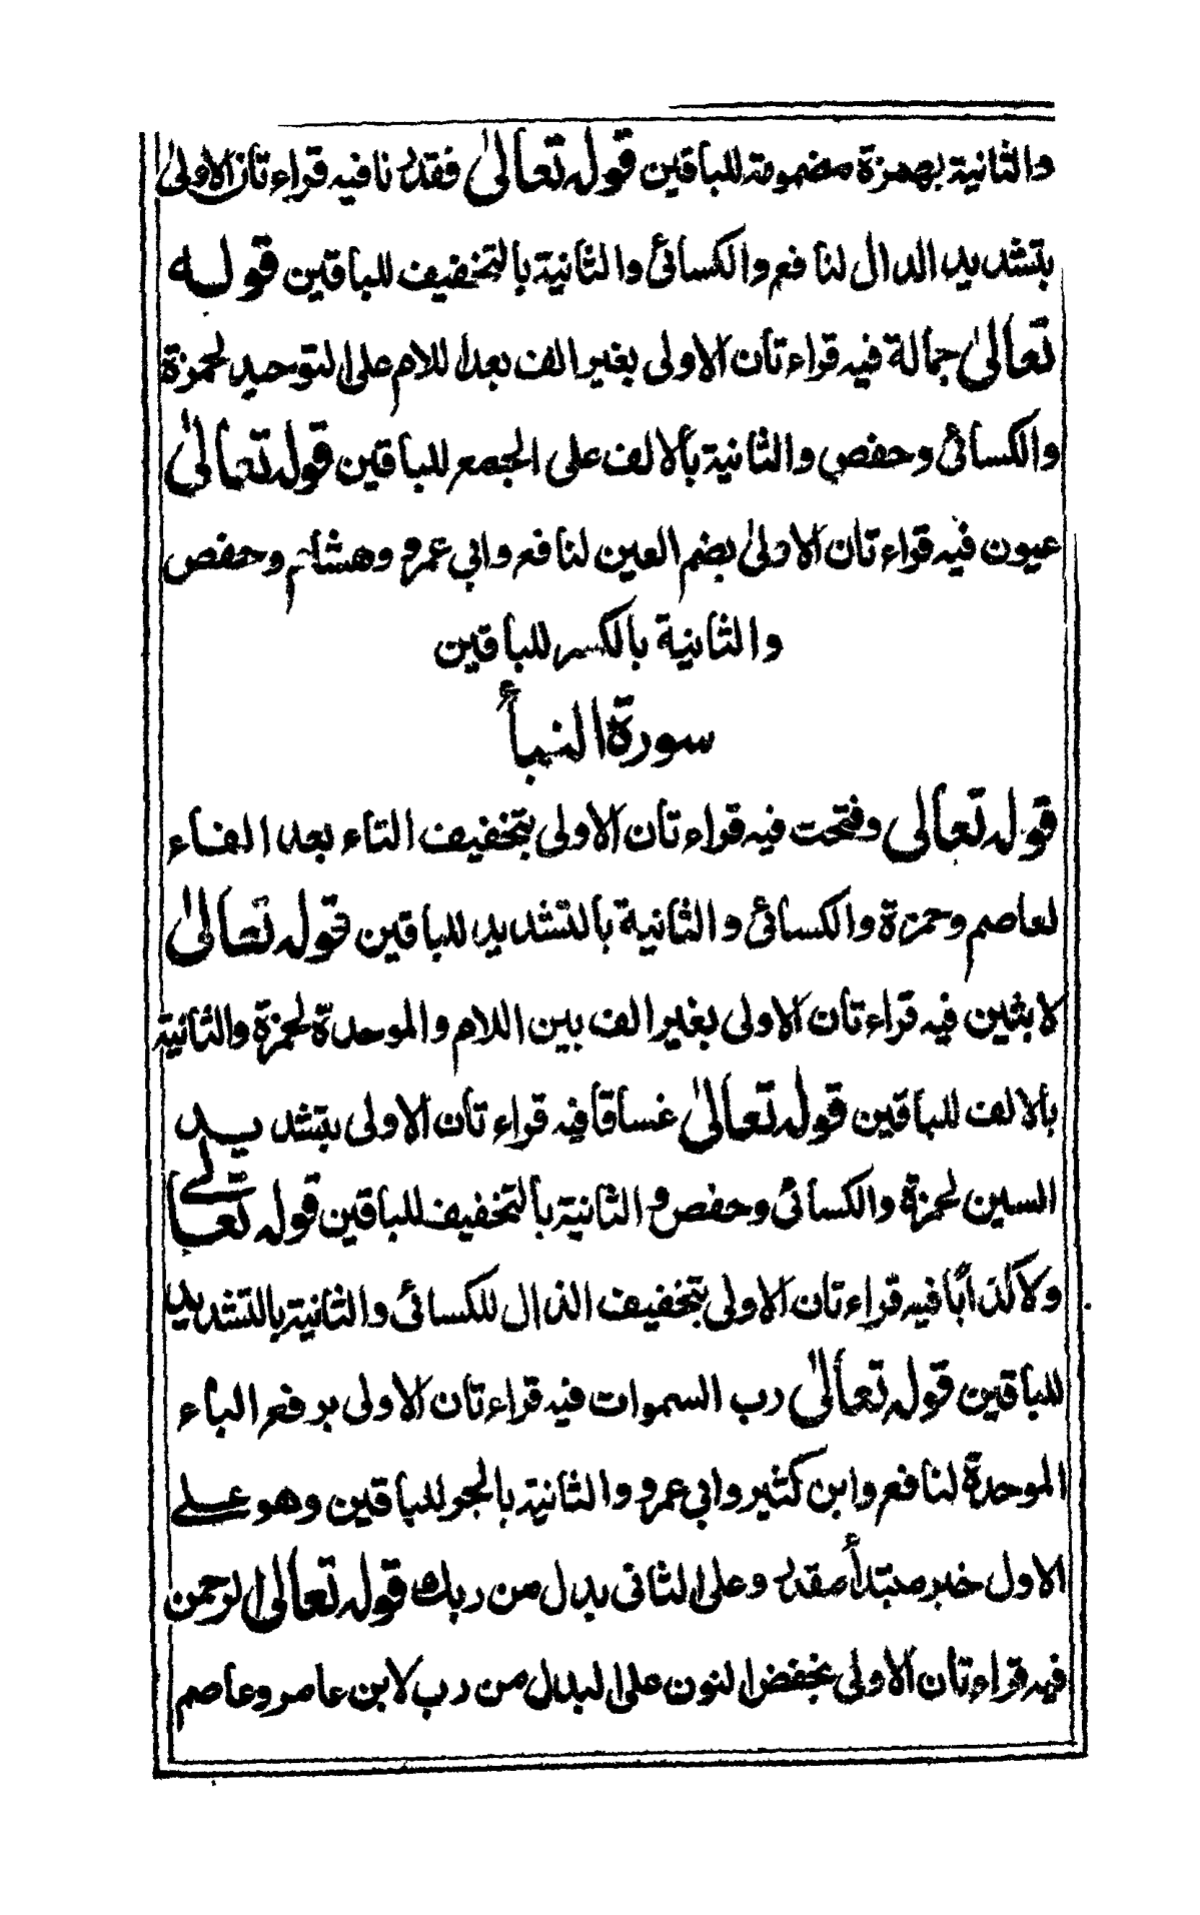 والثانية بهمزة مضمومة للباقين قوله تعالى فقدرنا فيه قراءتان الاولى
بتشديد الدال لنافع والكسائي والثانية بالتخفيف للباقين قوله
تعالى جمالة فيه قراءتان الاولى بغير الف بعد اللام على التوحيد لحمزة
والكسائي وحفص والثانية بألالف على الجمع للباقين قوله تعالى
عيون فيه قراءتان الاولى بضم العين لنافع وابي عمرو وهشام وحفص
والثانية بالكسر للباقين
سورة النبأ
قوله تعالى وفتحت فيه قراءتان الاولى بتخفيف التاء بعد الفاء
لعاصم وحمزة والكسائي والثانية بالتشديد للباقين قوله تعالى
لابثين فيه قراءتان الاولى بغير الف بين اللام والموحدة لحمزة والثانية
بألالف للباقين قوله تعالى غساقا فيه قراءتان الاولى بتشديد
السين لحمزة والكسائي وحفص والثانية بالتخفيف للباقين قوله تعالى
ولاكذابا فيه قراءتان الاولى بتخفيف الذال للكسائي والثانية بالتشديد
للباقين قوله تعالى رب السموات فيه قراءتان الاولى برفع الباء
الموحدة لنافع وابن كثير وابي عمرو والثانية بالجر للباقين وهو على
الاول خبر مبتدأ مقدر وعلى الثاني بدل من ربك قوله تعالى الرحمن
فيه قراءتان الاولى بخفض النون على البدل من رب لابن عامر وعاصم